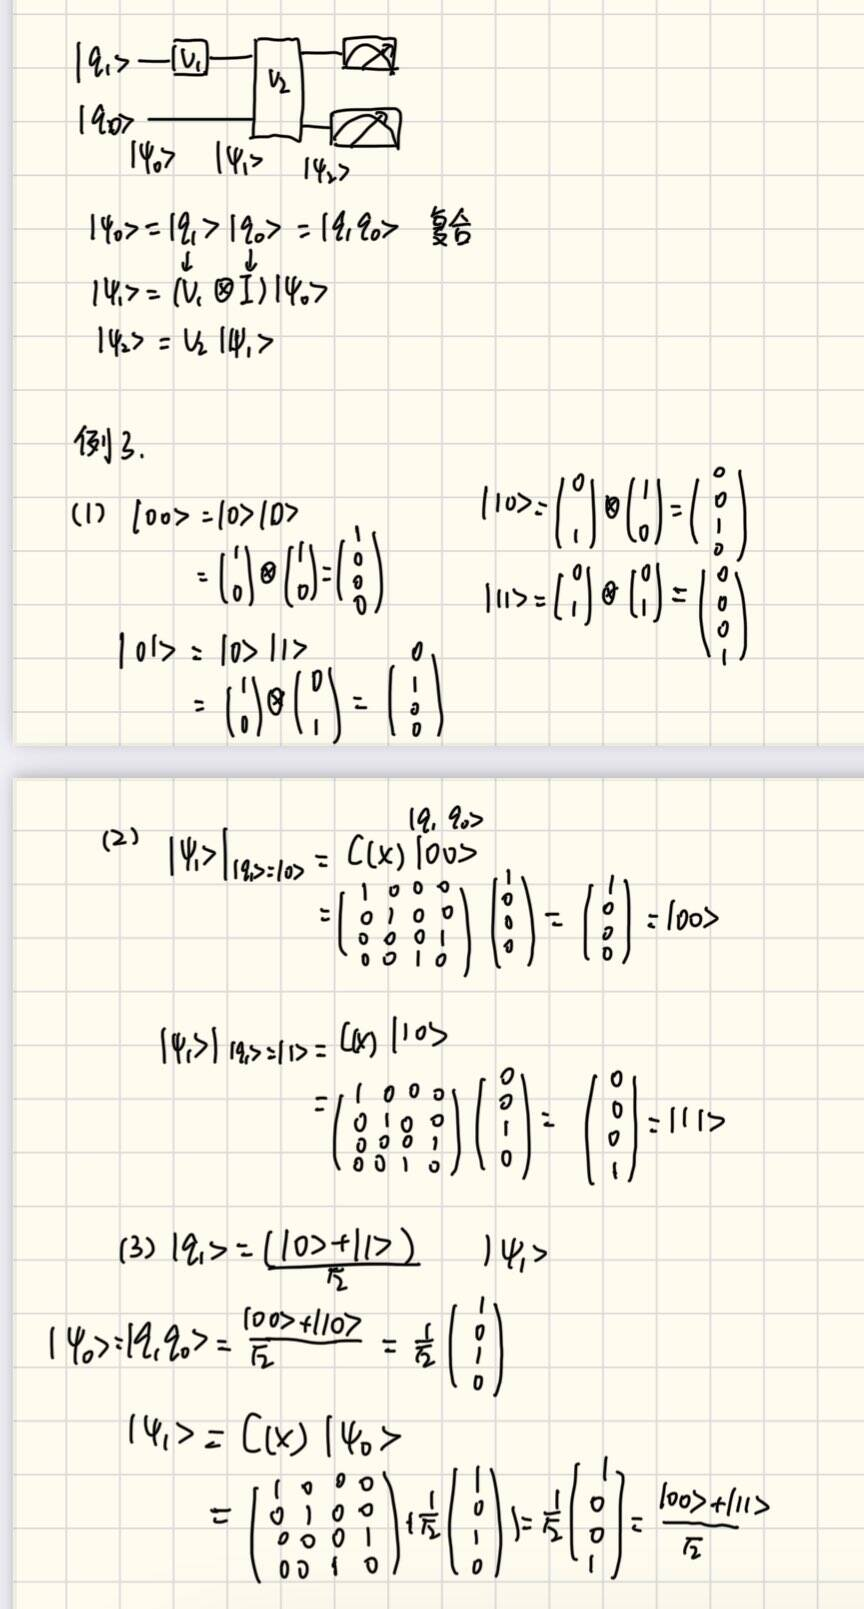 |q₁> U₁ U₂
|q₀>
|ψ₀> |ψ₁> |ψ₂>
|ψ₀> = |q₁> |q₀> = |q₁q₀> 复合
↓ ↓
|ψ₁> = (U₁ ⊗ I) |ψ₀>
|ψ₂> = U₂ |ψ₁>
例3.
(1) |00> = |0>|0>
= (1 0) ⊗ (1 0) = (1 0 0 0)
|01> = |0>|1>
= (1 0) ⊗ (0 1) = (0 1 0 0)
|10> = (0 1) ⊗ (1 0) = (0 0 1 0)
|11> = (0 1) ⊗ (0 1) = (0 0 0 1)
|q₁ q₀>
(2) |ψ₁>| |q₁>=|0> = C(x) |00>
= (1 0 0 0
0 1 0 0
0 0 0 1
0 0 1 0) (1 0 0 0) = (1 0 0 0) = |00>
|ψ₁>| |q₁>=|1> = C(x) |10>
= (1 0 0 0
0 1 0 0
0 0 0 1
0 0 1 0) (0 0 1 0) = (0 0 0 1) = |11>
(3) |q₁> = (|0>+|1>)/√2 |ψ₁>
|ψ₀> = |q₁q₀> = |00>+|10>/√2 = 1/√2 (1 0 1 0)
|ψ₁> = C(x) |ψ₀>
= (1 0 0 0
0 1 0 0
0 0 0 1
0 0 1 0) (1/√2 (1 0 1 0)) = 1/√2 (1 0 0 1) = |00>+|11>/√2